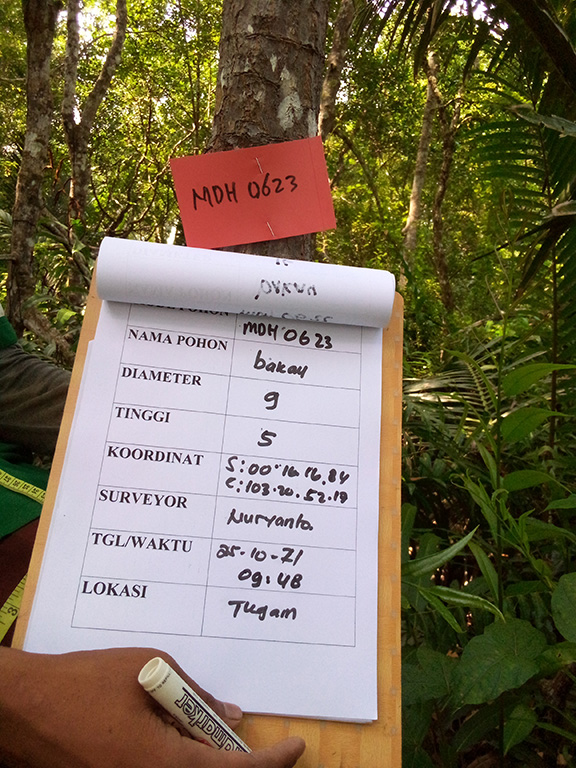 MDH 0623
POHON
MDH 0623
NAMA POHON
bakau
DIAMETER
9
TINGGI
5
KOORDINAT
S:00.16.16.84
E:103.20.52.17
SURVEYOR
Nuryanto
TGL/WAKTU
25-10-21
09:48
LOKASI
Tugam
marker